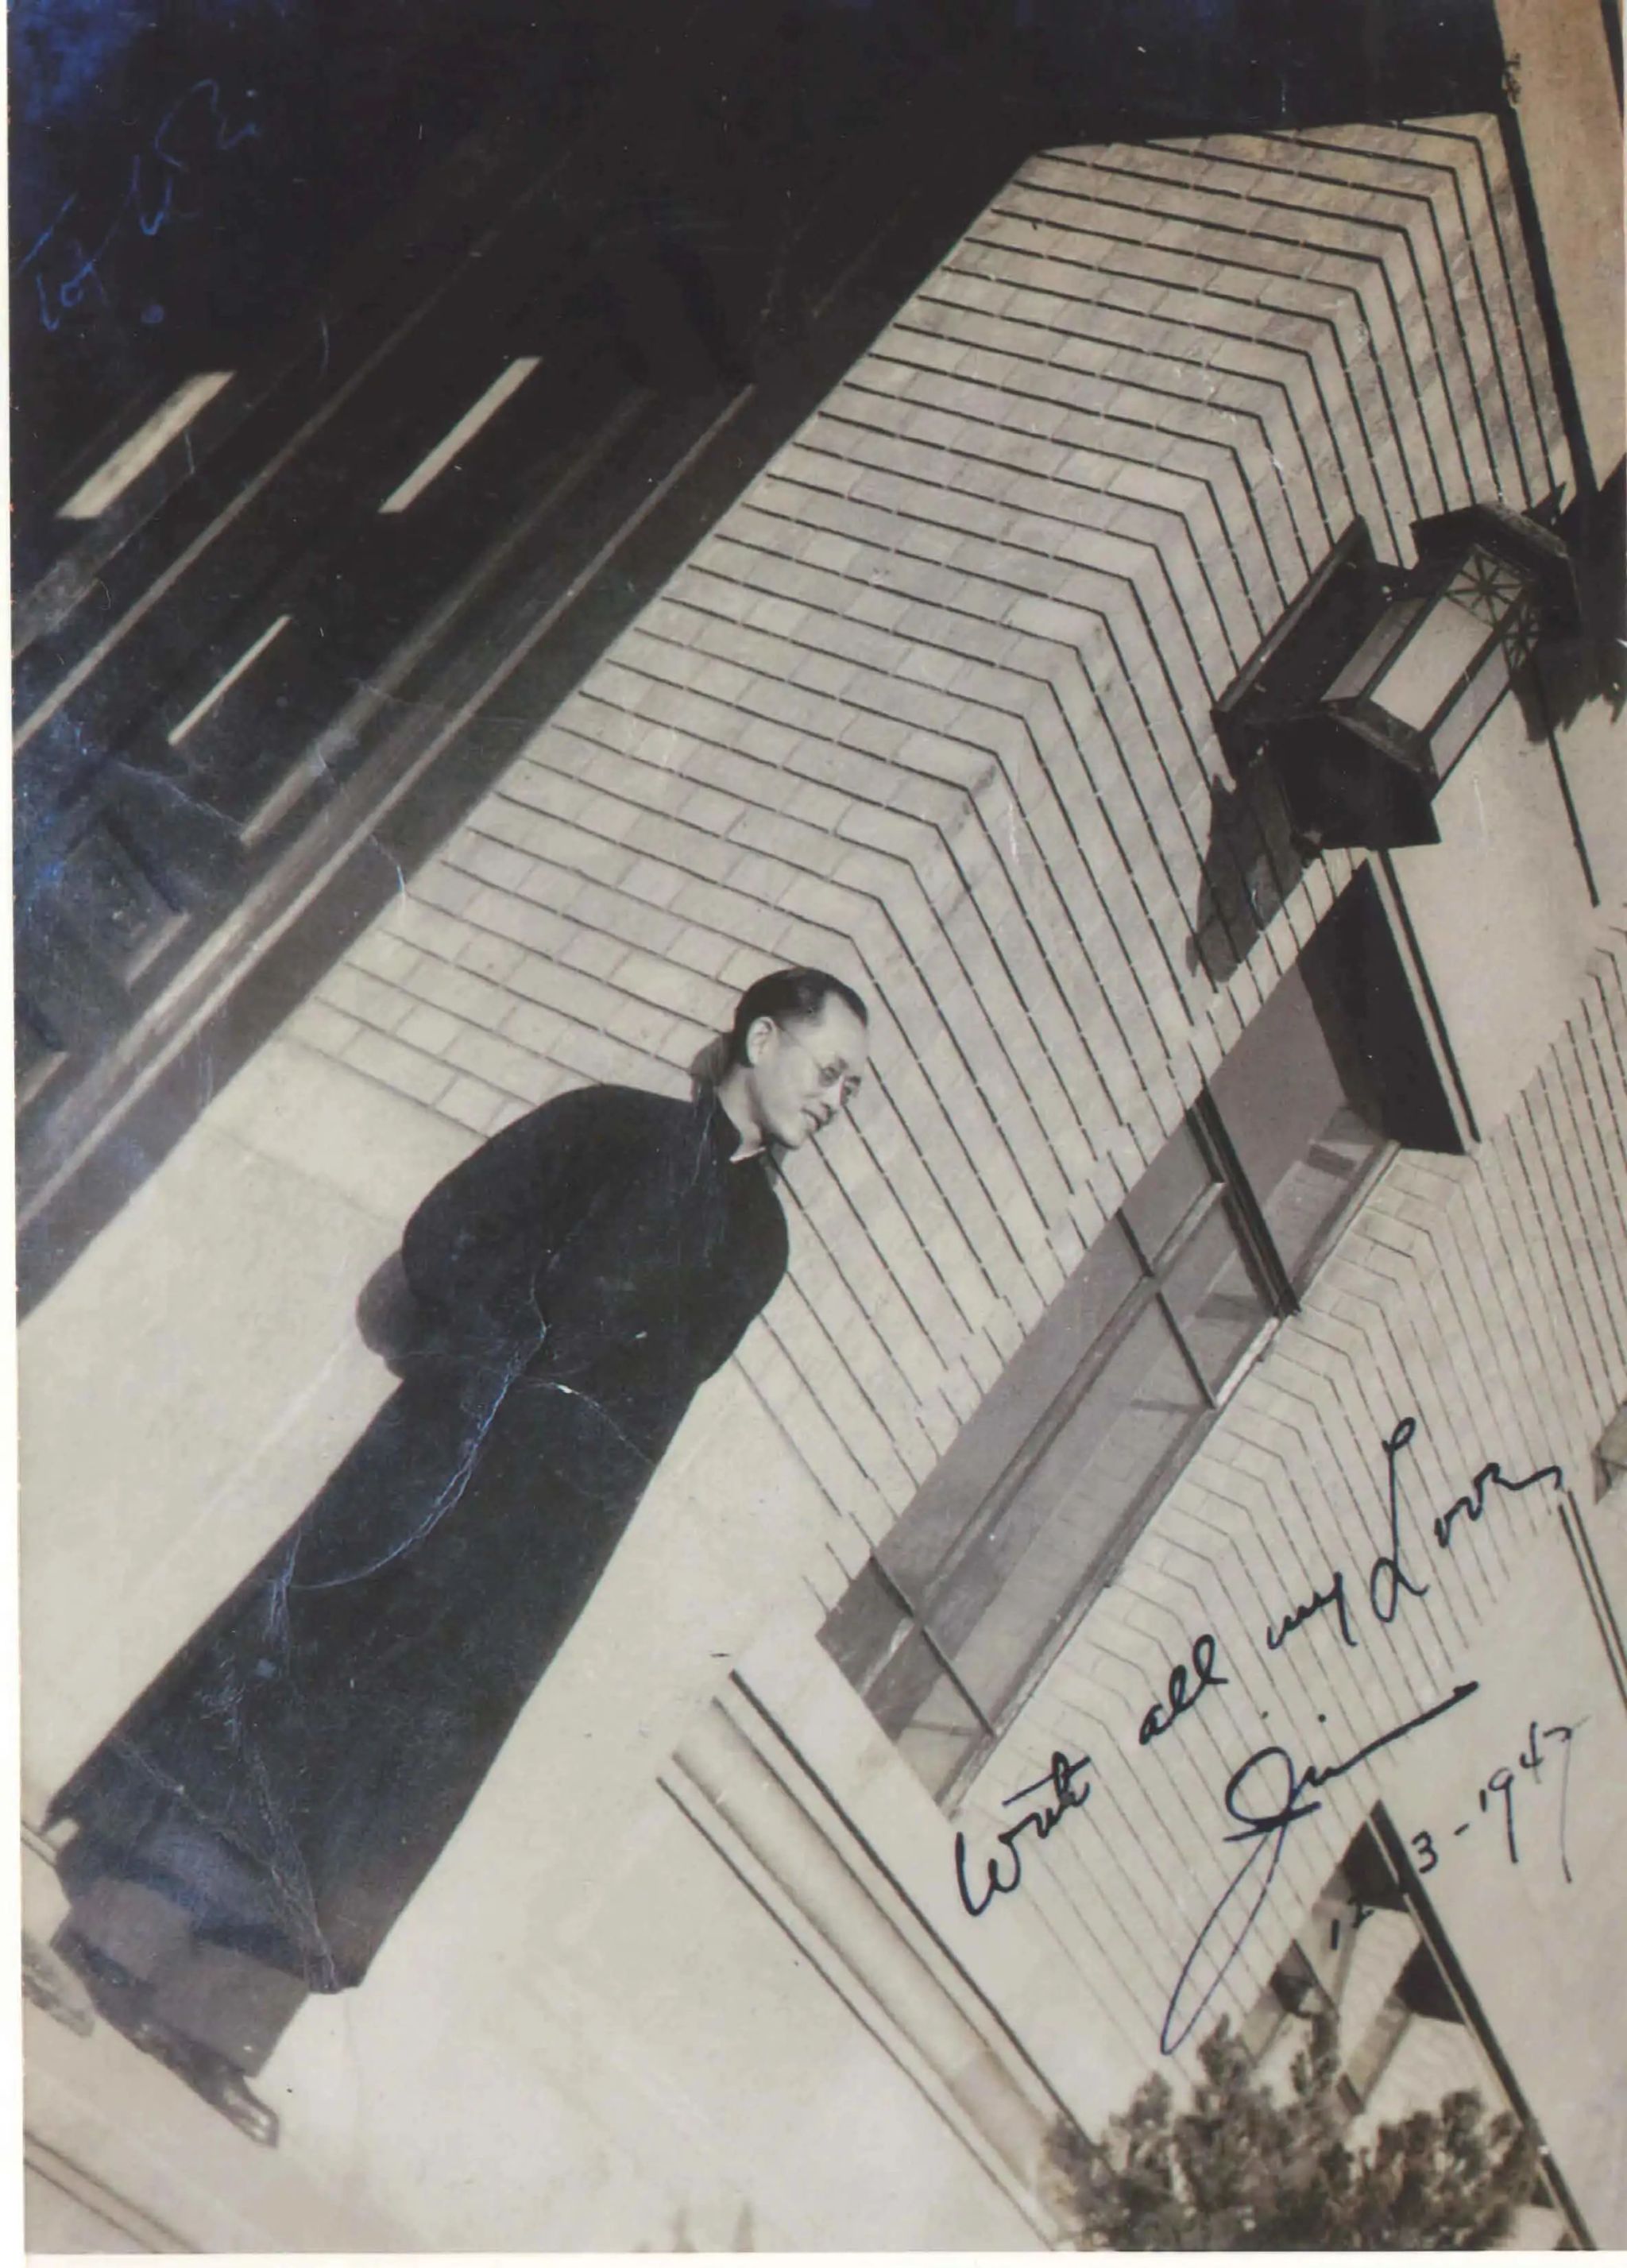 With all my Love,
Jim
12-3-1947